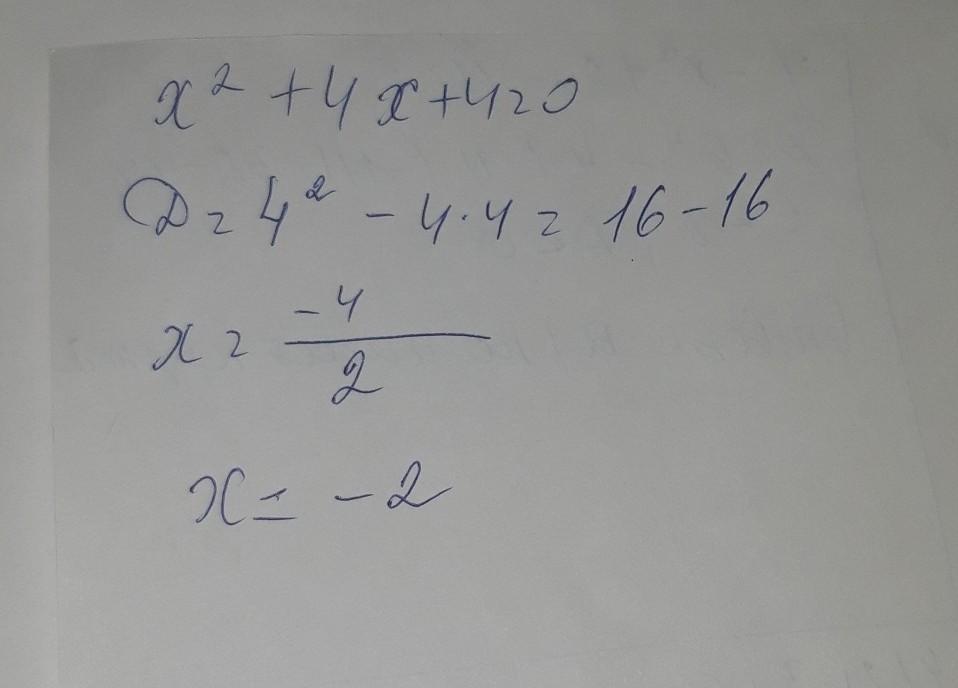 x² + 4x + 4 = 0
D = 4² - 4·4 = 16 - 16
x = -4/2
x = -2